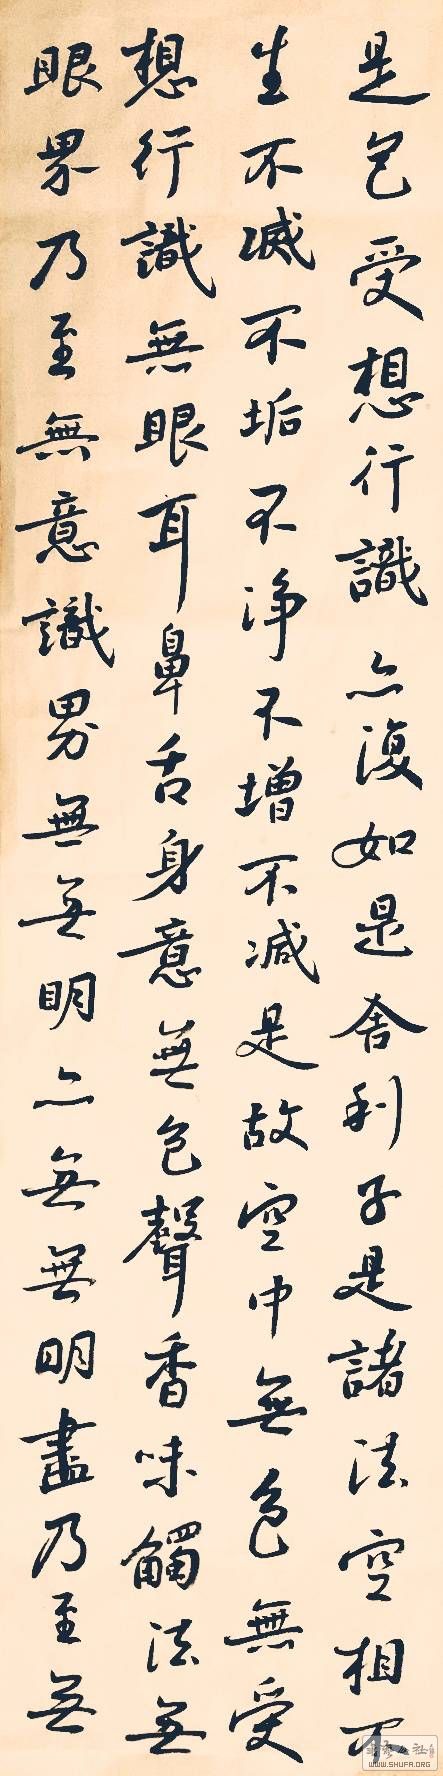 是色受想行識亦復如是舍利子是諸法空相不
生不滅不垢不淨不增不減是故空中無色無受
想行識無眼耳鼻舌身意無色聲香味觸法無
眼界乃至無意識界無無明亦無無明盡乃至無
WWW.SHUFA.ORG